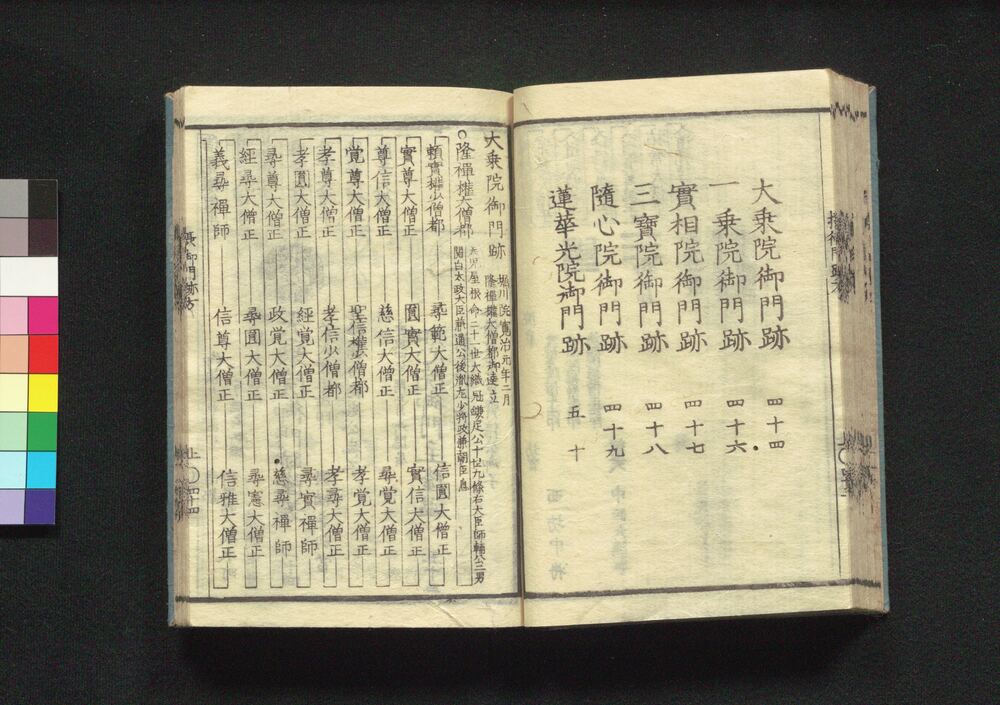 大乗院御門跡 四十四
一乗院御門跡 四十六
實相院御門跡 四十七
三寶院御門跡 四十八
隨心院御門跡 四十九
蓮華光院御門跡 五十
大乗院御門跡
堀川院寛治元年二月
隆禪權大僧都御建立
隆禪權大僧都
天児屋根命二十一世大織冠鎌足公十世九條右大臣師輔公三男
関白太政大臣兼通公後胤左少将政兼朝臣息
頼實權少僧都 尋範大僧正 信圓大僧正
實尊大僧正 圓實大僧正 實信大僧正
尊信大僧正 慈信大僧正 尋覚大僧正
覚尊大僧正 聖信權少僧都 孝覚大僧正
孝尊大僧正 孝信少僧都 孝尋大僧正
孝圓大僧正 經覚大僧正 尋實禪師
尋尊大僧正 政覚大僧正 慈尋禪師
經尋大僧正 尋圓大僧正 尋憲大僧正
義尋禪師 信尊大僧正 信雅大僧正
上 〇四十四